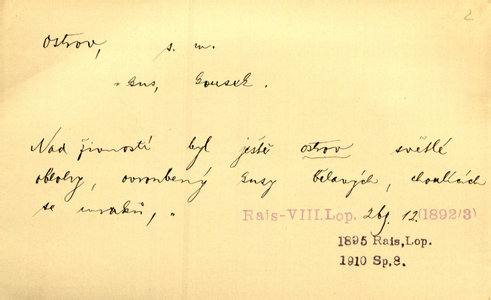 2
Ostrov, s. m.
= kus, kousek.
Nad živností byl ještě ostrov světlé
oblohy, ovroubený kusy bělavých, choulících
se mraků, „
Rais-VIII. Lop. 12. (1892/3)
1895 Rais, Lop.
1910 Sp. 8.